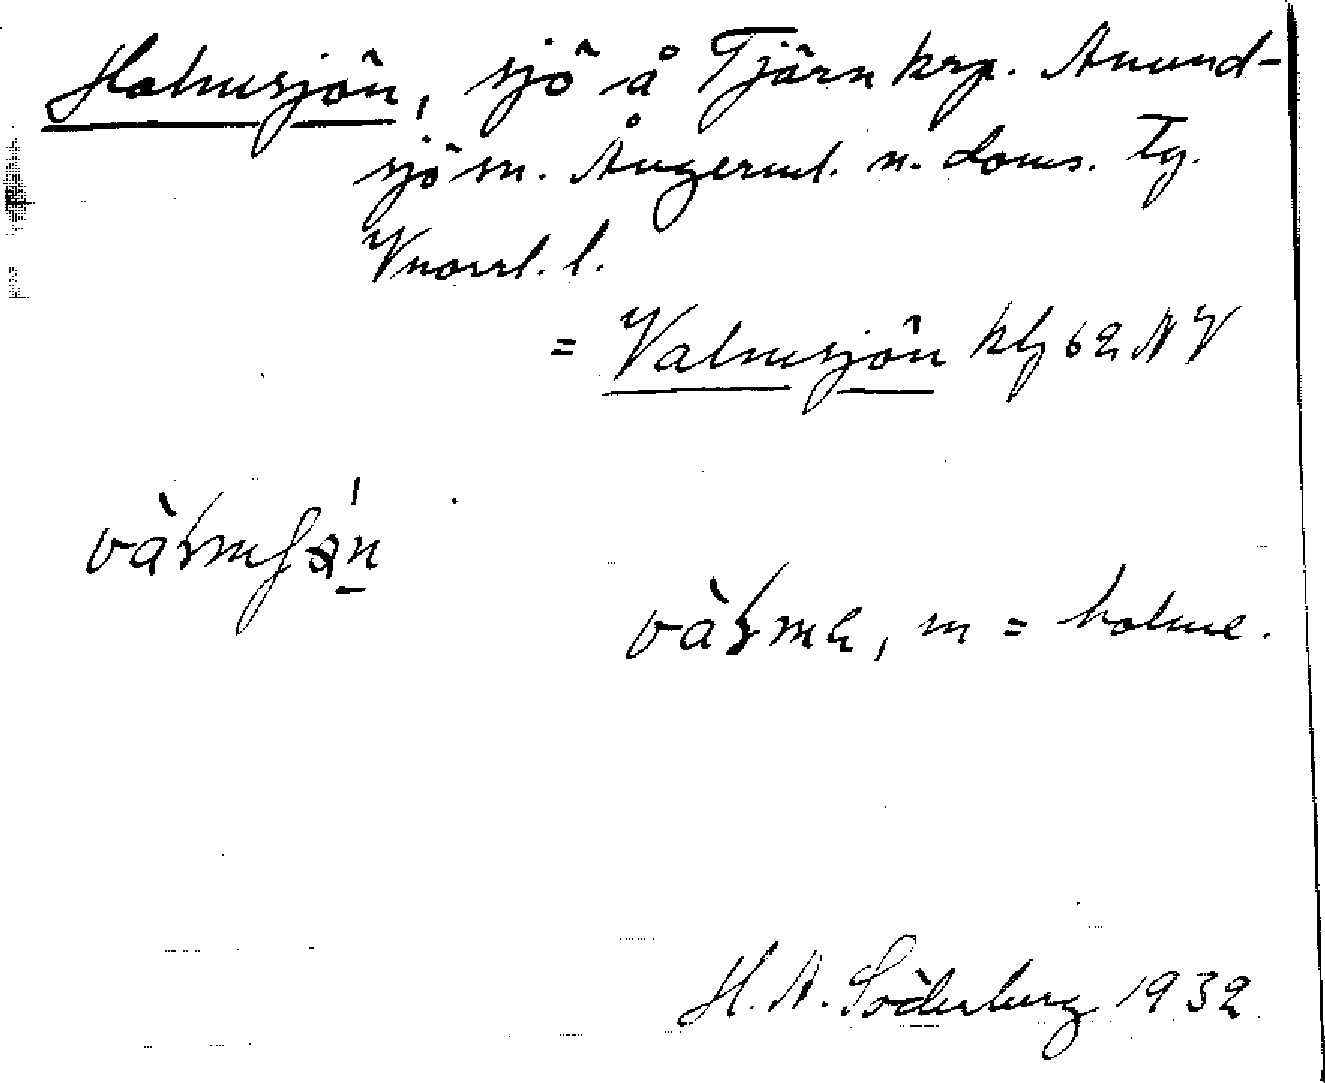 Holmsjön, sjö å Tjärn krp. Anund-
sjö sn. Ångerml. n. doms. Tg.
Vnorrl. l.
= Valmsjön kbl 62 NV
m = holme.
H. A. Söderberg 1932